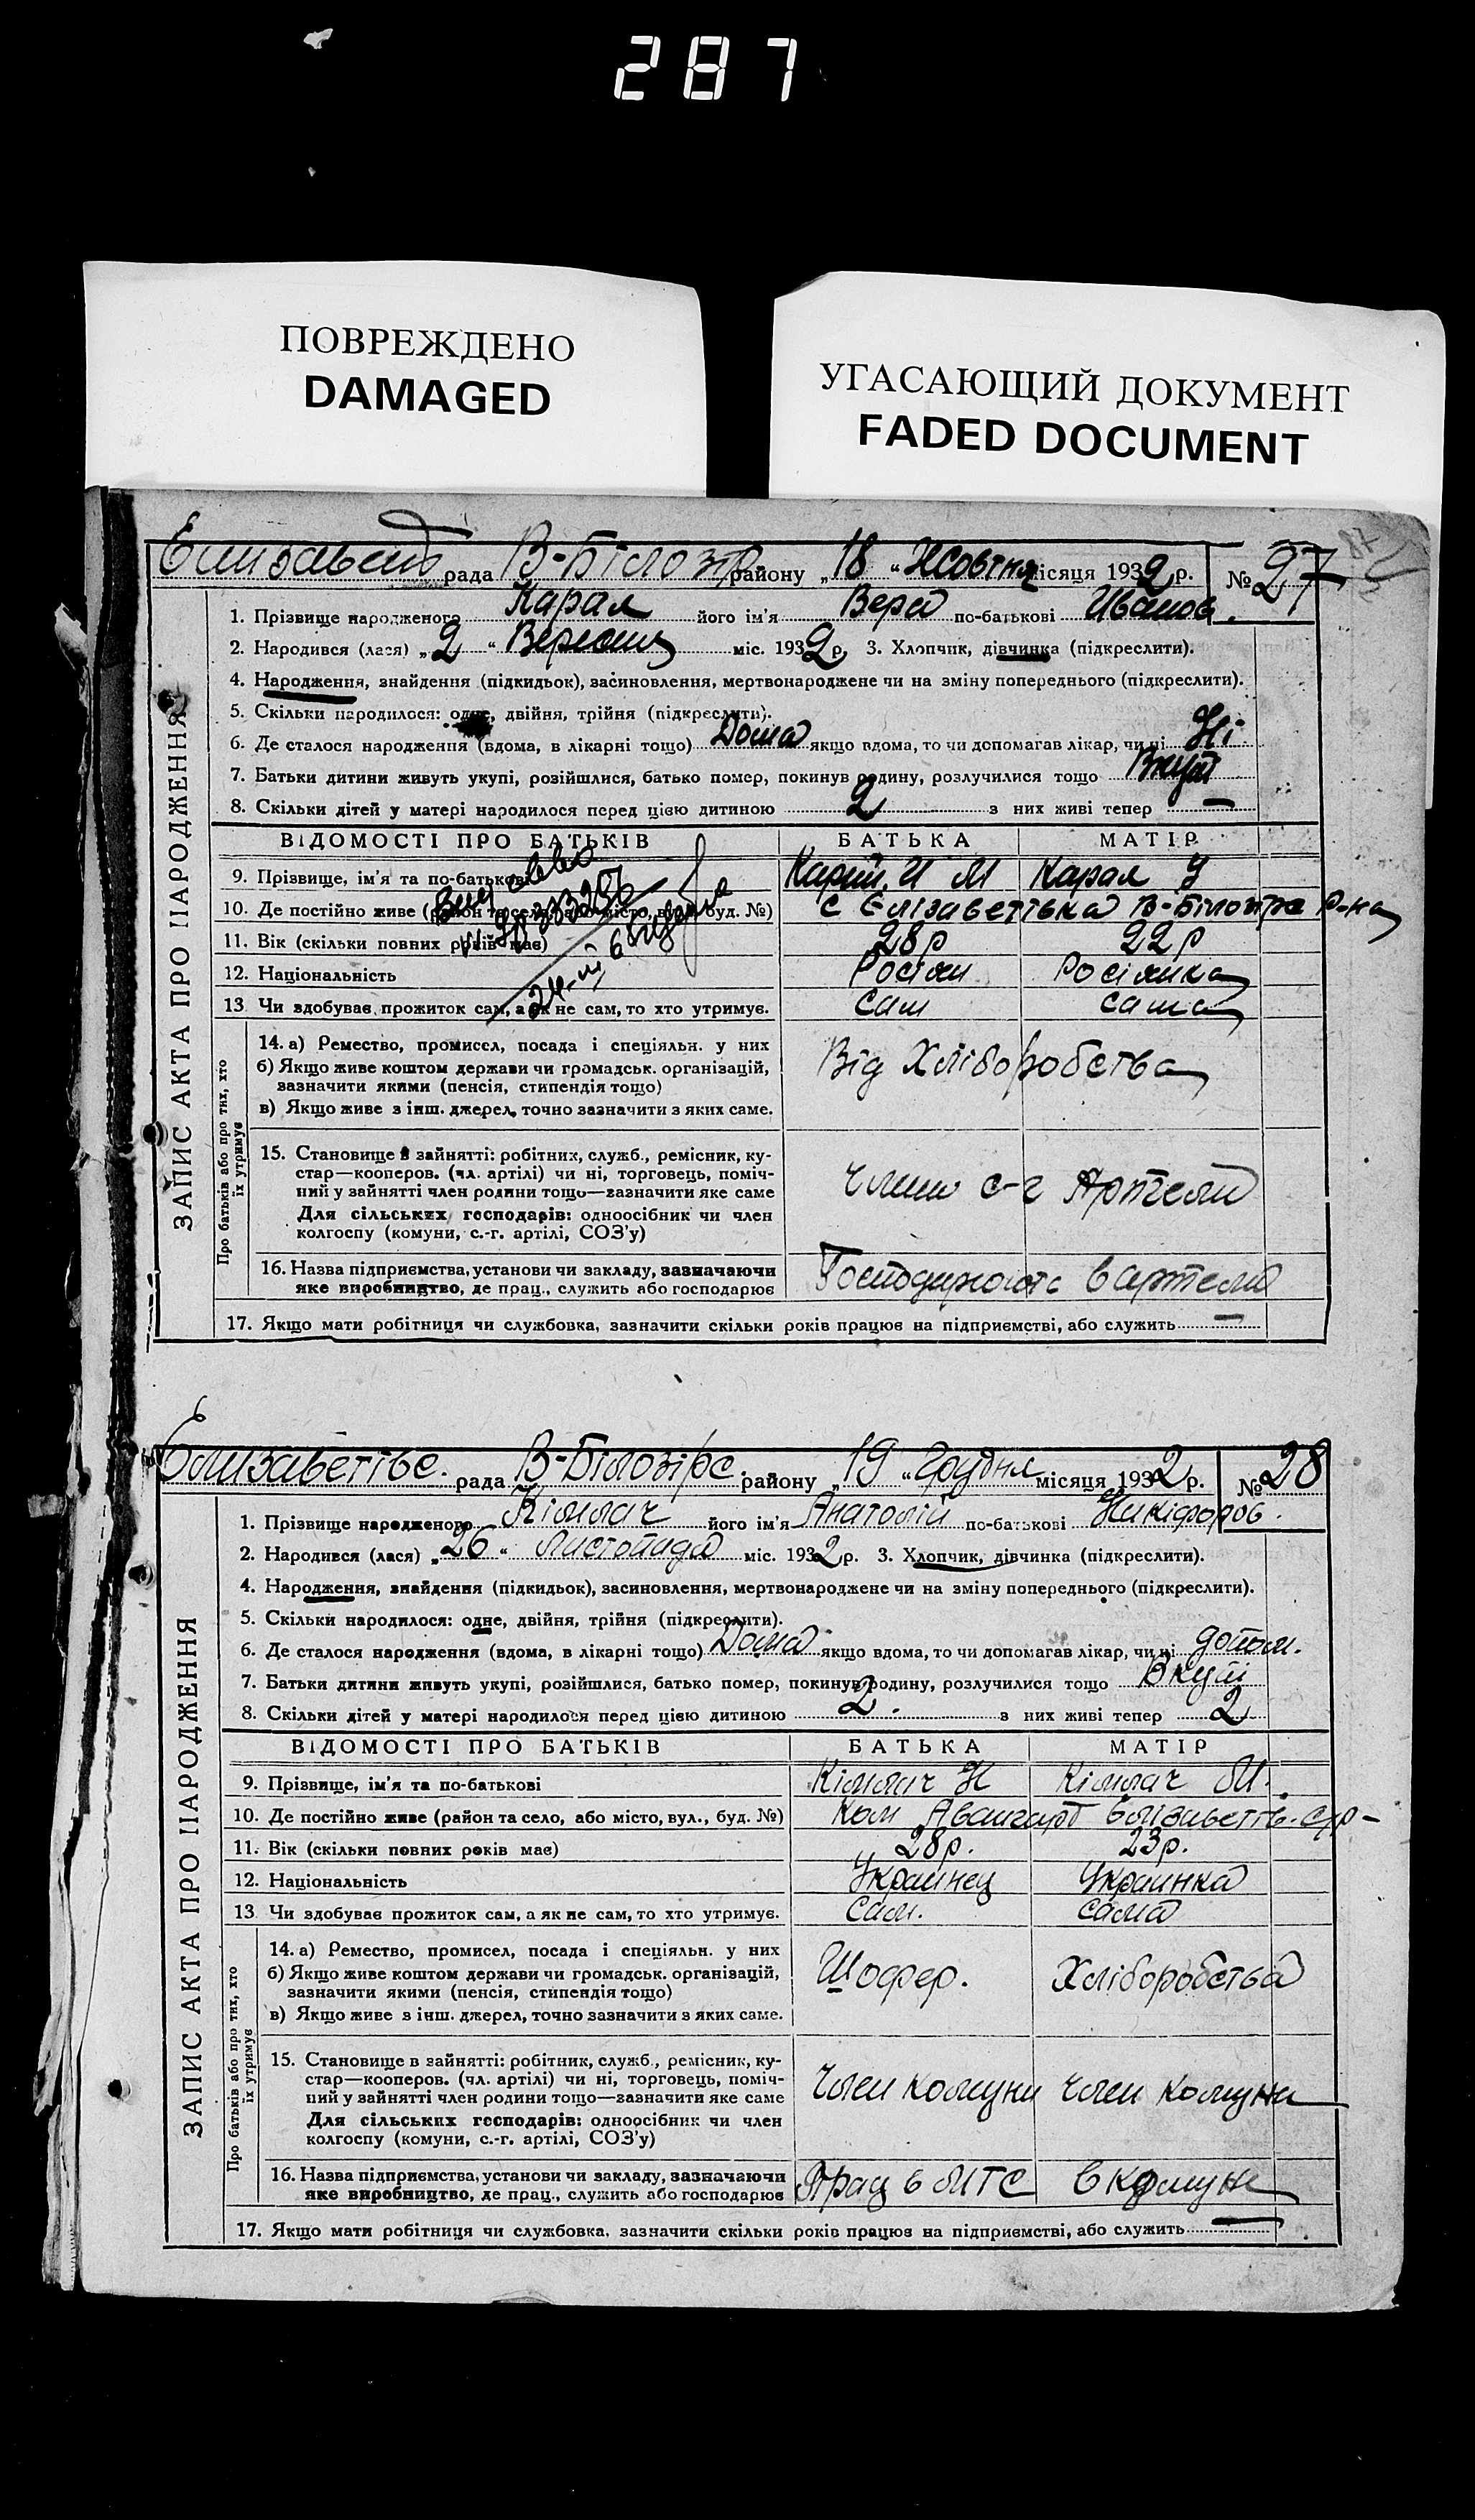 287
ПОВРЕЖДЕНО
DAMAGED
УГАСАЮЩИЙ ДОКУМЕНТ
FADED DOCUMENT
рада В-Білозір району „18“ Жовтня місяця 1932 р. № 27
ЗАПИС АКТА ПРО НАРОДЖЕННЯ
1. Прізвище народженого його ім'я Вера по-батькові Иванов.
2. Народився (лася) „2“ міс. 1932 р. 3. Хлопчик, дівчинка (підкреслити).
4. Народження, знайдення (підкидьок), засиновлення, мертвонароджене чи на зміну попереднього (підкреслити).
5. Скільки народилося: одне, двійня, трійня (підкреслити).
6. Де сталося народження (вдома, в лікарні тощо) Дома якщо вдома, то чи допомагав лікар, чи ні Ні
7. Батьки дитини живуть укупі, розійшлися, батько помер, покинув родину, розлучилися тощо
8. Скільки дітей у матері народилося перед цією дитиною 2 з них живі тепер —
ВІДОМОСТІ ПРО БАТЬКІВ БАТЬКА МАТІР
9. Прізвище, ім'я та по-батькові
10. Де постійно живе (район та село, або місто, вул., буд. №) с Єлізаветівка В-Білозірс Р-на
11. Вік (скільки повних років має) 28р 22р
12. Національність Росіян Росіянка
13 Чи здобуває прожиток сам, а як не сам, то хто утримує. Сам сама
Про батьків або про тих, хто їх утримує
14. а) Ремество, промисел, посада і спеціяльн. у них
б) Якщо живе коштом держави чи громадськ. організацій,
зазначити якими (пенсія, стипендія тощо) Від Хліборобства
в) Якщо живе з інш. джерел, точно зазначити з яких саме.
15. Становище в зайнятті: робітник, служб., ремісник, ку-
стар—кооперов. (чл. артілі) чи ні, торговець, поміч-
ний у зайнятті член родини тощо—зазначити яке саме с-г Артели
Для сільських господарів: одноосібник чи член
колгоспу (комуни, с.-г. артілі, СОЗ'у)
16. Назва підприємства, установи чи закладу, зазначаючи
яке виробництво, де прац., служить або господарює в артели
17. Якщо мати робітниця чи службовка, зазначити скільки років працює на підприємстві, або служить —
Елизаветівс. рада В-Білозірс. району „19“ Грудня місяця 1932 р. № 28
ЗАПИС АКТА ПРО НАРОДЖЕННЯ
1. Прізвище народженого його ім'я Анатолій по-батькові Никіфоров.
2. Народився (лася) „26“ Листопада міс. 1932 р. 3. Хлопчик, дівчинка (підкреслити).
4. Народження, знайдення (підкидьок), засиновлення, мертвонароджене чи на зміну попереднього (підкреслити).
5. Скільки народилося: одне, двійня, трійня (підкреслити).
6. Де сталося народження (вдома, в лікарні тощо) Дома якщо вдома, то чи допомагав лікар, чи ні допом.
7. Батьки дитини живуть укупі, розійшлися, батько помер, покинув родину, розлучилися тощо Вкупі
8. Скільки дітей у матері народилося перед цією дитиною 2. з них живі тепер 2
ВІДОМОСТІ ПРО БАТЬКІВ БАТЬКА МАТІР
9. Прізвище, ім'я та по-батькові
10. Де постійно живе (район та село, або місто, вул., буд. №) Ком Авангард Єлізаветів. с/р-
11. Вік (скільки повних років має) 28р. 23р.
12. Національність Украинец Украинка
13 Чи здобуває прожиток сам, а як не сам, то хто утримує. Сам. сама
Про батьків або про тих, хто їх утримує
14. а) Ремество, промисел, посада і спеціяльн. у них
б) Якщо живе коштом держави чи громадськ. організацій, Шофер. Хліборобства
зазначити якими (пенсія, стипендія тощо)
в) Якщо живе з інш. джерел, точно зазначити з яких саме.
15. Становище в зайнятті: робітник, служб., ремісник, ку-
стар—кооперов. (чл. артілі) чи ні, торговець, поміч-
ний у зайнятті член родини тощо—зазначити яке саме Член комуни Член комуни
Для сільських господарів: одноосібник чи член
колгоспу (комуни, с.-г. артілі, СОЗ'у)
16. Назва підприємства, установи чи закладу, зазначаючи
яке виробництво, де прац., служить або господарює Прац в МТС в комуне
17. Якщо мати робітниця чи службовка, зазначити скільки років працює на підприємстві, або служить —